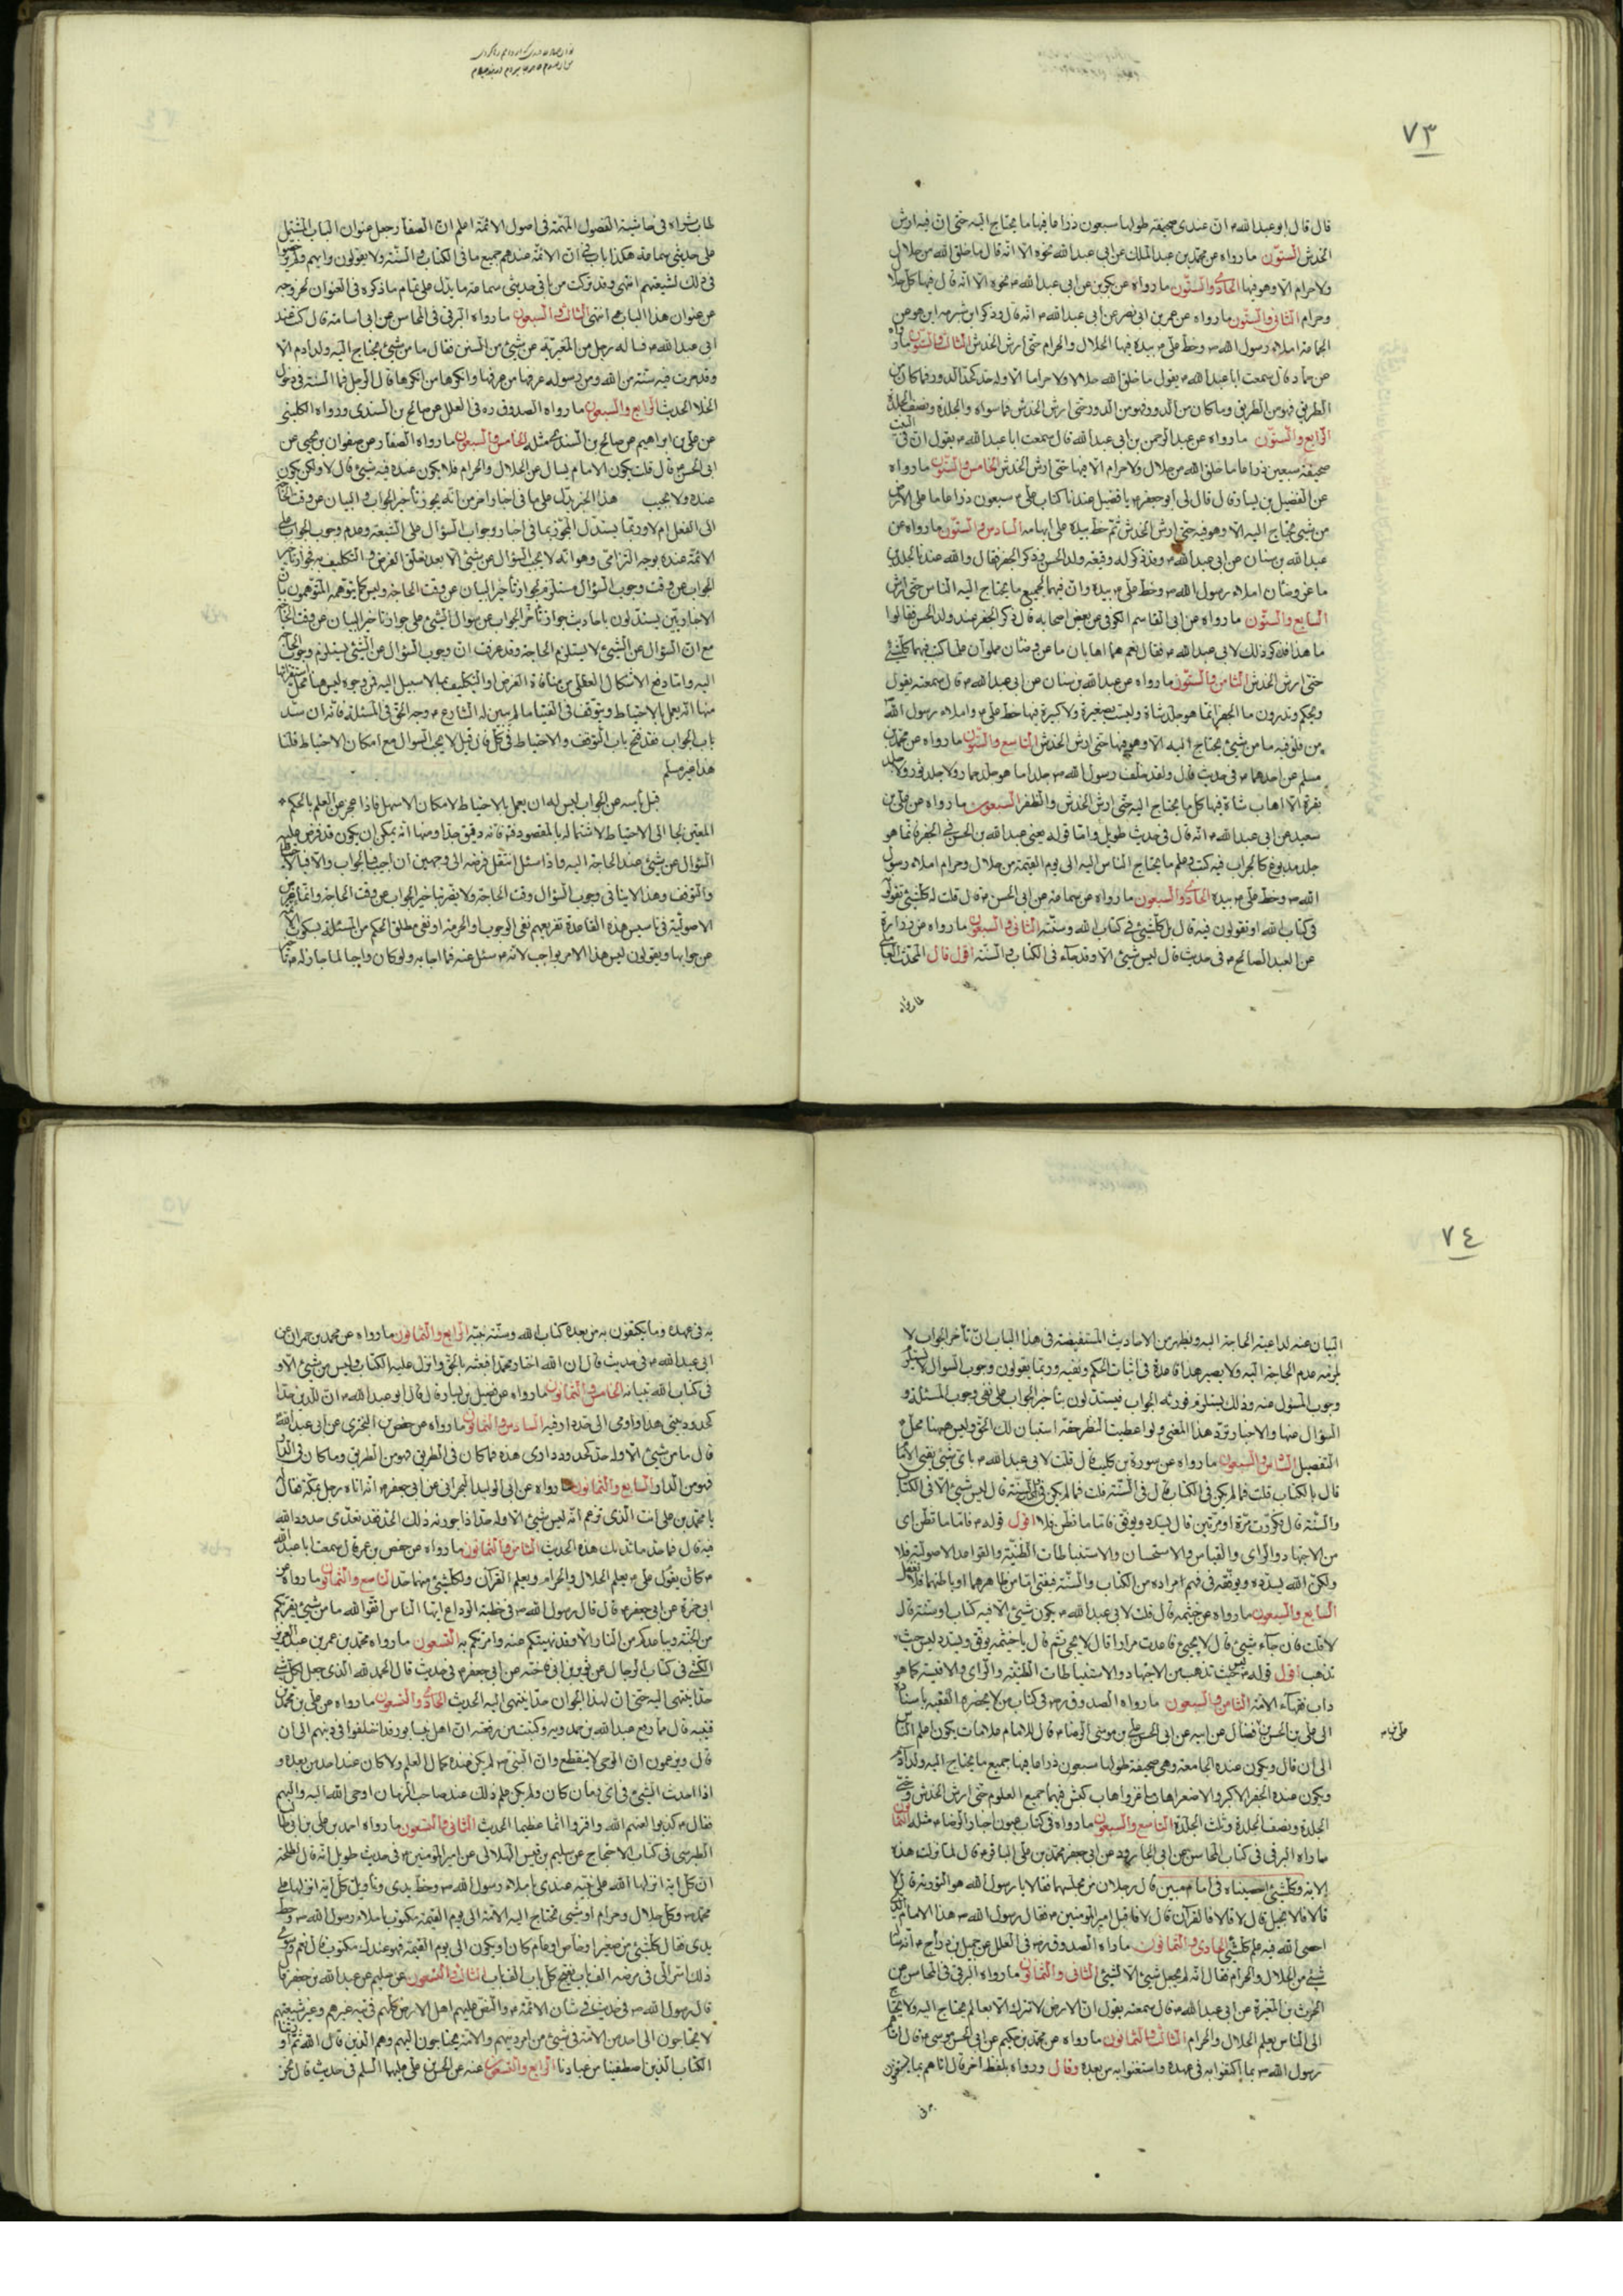 ٧٣
قال قال ابو عبدالله ان عندي صحيفة طولها سبعون ذراعا فيها ما يحتاج اليه حتى ان فيه ارش
الخدش الستون ما رواه عن محمد بن عبدالملك عن ابي عبدالله نحوه الا انه قال ما خلق الله من حلال
ولا حرام الا وهو فيها الحادي والستون ما رواه عن بكر بن عن ابي عبدالله نحوه الا انه قال فيها كل حلال
وحرام الثاني والستون ما رواه عن ابي بصير عن ابي عبدالله انه قال وذكر ابن شبرمه اين هو من
الجامعة املاء رسول الله وخط علي بيده فيها الحلال والحرام حتى ارش الخدش الثالث والستون ما رواه
عن حماد قال سمعت ابا عبدالله يقول ما خلق الله حلالا ولا حراما الا وله حد كحد الدور فما كان من
الطريق فهو من الطريق وما كان من الدور فهو من الدور حتى ارش الخدش فما سواه والجلدة ونصف الجلدة
الرابع والستون ما رواه عن عبدالرحمن بن ابي عبدالله قال سمعت ابا عبدالله يقول ان في البيت
صحيفة سبعين ذراعا ما خلق الله من حلال ولا حرام الا فيها حتى ارش الخدش الخامس والستون ما رواه
عن الفضيل بن يسار قال قال لي ابو جعفر يا فضيل عندنا كتاب علي سبعون ذراعا ما على الارض
من شيء يحتاج اليه الا وهو فيه حتى ارش الخدش ثم خط بيده على ابهامه السادس والستون ما رواه عن
عبدالله بن سنان عن ابي عبدالله وقد ذكر له وقيعة ولد الحسن وذكر الجفر فقال والله عندنا لجلدي
ماعز وضان املاء رسول الله وخط علي بيده وان فيهما لجميع ما يحتاج اليه الناس حتى ارش
السابع والستون ما رواه عن ابي القاسم الكوفي عن بعض اصحابه قال ذكر الجفر عند ولد الحسن فقالوا
ما هذا فذكر ذلك لابي عبدالله فقال نعم هما اهابان ماعز وضان مملوان علما كتب فيهما كل شيء
حتى ارش الخدش الثامن والستون ما رواه عن عبدالله بن سنان عن ابي عبدالله قال سمعته يقول
ويحكم وتدرون ما الجفر انما هو جلد شاة وليست بصغيرة ولا كبيرة فيها خط علي واملاء رسول الله
من فلق فيه ما من شيء يحتاج اليه الا وهو فيها حتى ارش الخدش التاسع والستون ما رواه عن محمد بن
مسلم عن احدهما في حديث قال ولقد خلف رسول الله جلدا ما هو جلد حمار ولا جلد ثور ولا جلد
بقرة الا اهاب شاة فيها كل ما يحتاج اليه حتى ارش الخدش والظفر السبعون ما رواه عن علي بن
سعيد عن ابي عبدالله انه قال في حديث طويل واما قوله يعني عبدالله بن الحسن في الجفر فانما هو
جلد مدبوغ كالجراب فيه كتب وعلم ما يحتاج الناس اليه الى يوم القيمة من حلال وحرام املاء رسول
الله وخط علي بيده الحادي والسبعون ما رواه عن سماعة عن ابي الحسن قال قلت له كل شيء تقول
في كتاب الله او تقولون فيه قال بل كل شيء في كتاب الله وسنته الثاني والسبعون ما رواه عن زرارة
عن العبد الصالح في حديث قال ليس شيء الا وقد جاء في الكتاب والسنة اقول قال المحدث العاملي
طاب ثراه في حاشية الفصول المهمة في اصول الائمة اعلم ان الصفار جعل عنوان الباب المشتمل
على حديثي سماعة هكذا باب في ان الائمة عندهم جميع ما في الكتاب والسنة ولا يقولون برايهم
في ذلك لشيعتهم انتهى وقد تركت من باقي حديثي سماعة ما يدل على تمام ما ذكره في العنوان لخروجه
عن عنوان هذا الباب انتهى الثالث والسبعون ما رواه البرقي في المحاسن عن ابي اسامة قال كنت عند
ابي عبدالله فساله رجل من المغيرية عن شيء من السنن فقال ما من شيء يحتاج اليه ولد ادم الا
وقد جرت فيه سنة من الله ومن رسوله عرفها من عرفها وانكرها من انكرها قال الرجل فما السنة في دخول
الخلا الحديث الرابع والسبعون ما رواه الصدوق ره في العلل عن صالح بن السندي ورواه الكليني
عن علي بن ابراهيم عن صالح بن السندي مثله الخامس والسبعون ما رواه الصفار عن صفوان بن يحيى عن
ابي الحسن قال قلت يكون الامام يسال عن الحلال والحرام فلا يكون عنده فيه شيء قال لا ولكن يكون
عنده ولا يجيب هذا الخبر يدل على ما في اخبار اخر من انه يجوز تأخير الجواب والبيان عن وقت الحاجة
الى الفعل ام لا وربما يستدل المجوز بما في اخبار وجوب السؤال على الشيعة وعدم وجوب الجواب على
الائمة عنده بوجه التزامي وهو انه لا يجب السؤال عن شيء الا بعد تعلق الفرض والتكليف به فجواز تأخير
الجواب عن وقت وجوب السؤال مستلزم لجواز تأخير البيان عن وقت الحاجة وليس كما يتوهمه المتوهمون بأن
الاخباريين يستدلون باحاديث جواز تأخر الجواب عن سؤال الشيء على جواز تأخير البيان عن وقت الحاجة
مع ان السؤال عن الشيء لا يستلزم الحاجة وقد عرفت ان وجوب السؤال عن الشيء يستلزم وجوب الحاجة
اليه واما دفع الاشكال العقلي من منافاة الغرض او التكليف بما لا سبيل اليه فمن وجوه ليس هنا محل استقرائها
منها انه يعمل بالاحتياط ويتوقف في الفتيا ما لم يبين له الشارع وجه الحق في المسئلة فانه ان سد
باب الجواب فقد فتح باب التوقف والاحتياط في كل فان قيل لا يجب السوال مع امكان الاحتياط قلنا
هذا غير مسلم
قبل يأسه عن الجواب ليس له ان يعمل بالاحتياط لامكان الاسهل فاذا عجز عن العلم بالحكم
المعين لجا الى الاحتياط لاشتماله بالمقصود فيه فانه دقيق جدا ومنها انه يمكن ان يكون قد فرض عليه
السؤال عن شيء عند الحاجة اليه واذا سئل انتقل فرضه الى وجهين ان اجيب فالجواب والا فبالاحتياط
والتوقف وهذا لا ينافي وجوب السؤال وقت الحاجة ولا يضر تأخير الجواب عن وقت الحاجة وانما غرض
الاصولية في تاسيس هذه القاعدة تفريعهم نفي الوجوب او الحرمة او نفي مطلق الحكم من المسئلة بسكوت
عن جوابها ويقولون ليس هذا الامر بواجب لانه سئل عنه فما اجابه ولو كان واجبا لما جاز له تأخير
٧٤
البيان عنه لداعية الحاجة اليه ويظهر من الاحاديث المستفيضة في هذا الباب ان تأخر الجواب لا
يلزمه عدم الحاجة اليه ولا يصير هذا قاعدة في اثبات الحكم ونفيه وربما يقولون وجوب السؤال لا يستلزم
وجوب المسؤل عنه وذلك يستلزم فورية الجواب فيستدلون بتأخير الجواب على نفي وجوب المسئلة و
السؤال عنها والاخبار ترد هذا المعنى ولو اعطيت النظر حقه استبان لك الحق وليس ههنا محل
التفصيل السادس والسبعون ما رواه عن سورة بن كليب قال قلت لابي عبدالله باي شيء يفتي الامام
قال بالكتاب قلت فما لم يكن في الكتاب قال في السنة قلت فما لم يكن في السنة قال ليس شيء الا في الكتاب
والسنة قال فكررت مرة او مرتين قال يسدد ويوفق فاما ما تظن فلا اقول قوله فاما ما تظن اي
من الاجتهاد والراي والقياس والاستحسان والاستنباطات الظنية والقواعد الاصولية فلا
ولكن الله يسدده ويوفقه في فهم مراده من الكتاب والسنة فيفتي اما من ظاهرهما او باطنهما فلا تغفل
السابع والسبعون ما رواه عن خثيمة قال قلت لابي عبدالله يكون شيء لا فيه كتاب او سنة قال
لا قلت فان جاء شيء قال لا يجيء فاعدت مرارا قال لا يجيء ثم قال يا خثيمة يوفق ويسدد ليس حيث
تذهب اقول قوله ليس حيث تذهب من الاجتهاد والاستنباطات الظنية والراي والاقيسة كما هو
داب فقهاء الامة الثامن والسبعون ما رواه الصدوق في كتاب من لا يحضره الفقيه باسناده
الى علي بن الحسن بن فضال عن ابيه عن ابي الحسن علي بن موسى الرضا قال للامام علامات يكون اعلم الناس
الى ان قال ويكون عنده الجامعة وهي صحيفة طولها سبعون ذراعا فيها جميع ما يحتاج اليه ولد آدم
ويكون عنده الجفر الاكبر والاصغر اهاب ماعز واهاب كبش فيهما جميع العلوم حتى ارش الخدش وحتى
الجلدة ونصف الجلدة وثلث الجلدة التاسع والسبعون ما رواه في كتاب عيون اخبار الرضا مثله الثمانون
ما رواه البرقي في كتاب المحاسن عن ابي الجارود عن ابي جعفر محمد بن علي الباقر قال لما نزلت هذه
الاية وكل شيء احصيناه في امام مبين قال رجلان من مجلسهما فقالا يا رسول الله هو التورية قال لا
قالا فالانجيل قال لا قالا فالقرآن قال لا فاقبل امير المؤمنين فقال رسول الله هذا الامام الذي
احصى الله فيه علم كل شيء الحادي والثمانون ما رواه الصدوق في العلل عن جميل بن دراج انه
شيء من الحلال والحرام فقال انه لم يجعل شيء الا لشيء الثاني والثمانون ما رواه البرقي في المحاسن عن
الحرث بن المغيرة عن ابي عبدالله قال سمعته يقول ان الارض لا تترك الا بعالم يحتاج اليه ولا يحتاج
الى الناس يعلم الحلال والحرام الثالث والثمانون ما رواه عن محمد بن حكيم عن ابي الحسن موسى قال اتاهم
رسول الله بما اكتفوا به في عهده واستغنوا به من بعده وقال ورواه بلفظ اخر قال اتاهم بما يكتفون
به في عهده وما يكتفون به من بعده كتاب الله وسنة نبيه الرابع والثمانون ما رواه عن محمد بن حمران عن
ابي عبدالله في حديث قال ان الله اختار محمدا فبعثه بالحق وانزل عليه الكتاب وليس من شيء الا و
في كتاب الله تبيانه الخامس والثمانون ما رواه عن فضيل بن يسار قال قال ابو عبدالله ان للدين حدا
كحدود بيتي هذا واومى الى جدار فيه السادس والثمانون ما رواه عن حفص بن البختري عن ابي عبدالله
قال ما من شيء الا وله حد كحدود داري هذه فما كان في الطريق فهو من الطريق وما كان في الدار
فهو من الدار السابع والثمانون ما رواه عن ابي الوليد البحراني عن ابي جعفر انه اتاه رجل بمكة فقال
يا محمد بن علي انت الذي تزعم انه ليس شيء الا وله حد اذا جوز به ذلك الحد فقد تعدى حدود الله
فيه قال فما حد مائدتك هذه الحديث الثامن والثمانون ما رواه عن حفص بن عمر قال سمعت ابا عبدالله
كان يقول علي يعلم الحلال والحرام ويعلم القرآن ولكل شيء منهما حد التاسع والثمانون ما رواه عن
ابي حمزة عن ابي جعفر قال قال رسول الله في خطبة الوداع ايها الناس اتقوا الله ما من شيء يقربكم
من الجنة ويباعدكم من النار الا وقد نهيتكم عنه وامرتكم به التسعون ما رواه محمد بن عمر بن عبدالعزيز
الكشي في كتاب الرجال عن ثوير بن ابي فاخته عن ابي جعفر في حديث قال الحمد لله الذي جعل لكل شيء
حدا ينتهي اليه حتى ان لهذا الخوان حدا ينتهي اليه الحديث الحادي والتسعون ما رواه عن علي بن محمد بن
قتيبة قال مما رفع عبدالله بن حمدويه وكتبت من رقعته ان اهل نيسابور قد اختلفوا في دينهم الى ان
قال ويزعمون ان الوحي لا ينقطع وان النبي لم يكن عنده كمال العلم ولا كان عند احد من بعده و
اذا احدث الشيء في اي زمان كان ولم يكن علم ذلك عند صاحب الزمان اوحى الله اليه واليهم
فقال كذبوا لعنهم الله وافتروا اثما عظيما الحديث الثاني والتسعون ما رواه احمد بن علي بن ابي طالب
الطبرسي في كتاب الاحتجاج عن سليم بن قيس الهلالي عن امير المؤمنين في حديث طويل انه قال لطلحة
ان كل اية انزلها الله على نبيه عندي باملاء رسول الله وخط يدي وتاويل كل اية انزلها على
محمد وكل حلال وحرام او شيء تحتاج اليه الامة الى يوم القيمة مكتوب باملاء رسول الله وخط
يدي فقال كل شيء من صغير او خاص او عام كان او يكون الى يوم القيمة فهو عندك مكتوب قال نعم وسوى
ذلك اسر الي في مرضه الف باب يفتح كل باب الف باب الثالث والتسعون عن سليم عن عبدالله بن جعفر قال
قال رسول الله في حديث في شان الائمة والنص عليهم اهل الارض كلهم في تيه غيرهم وغير شيعتهم
لا يحتاجون الى احد من الامة في شيء من امر دينهم والامة يحتاجون اليهم وهم الذين قال الله ثم اورثنا
الكتاب الذين اصطفينا من عبادنا الرابع والتسعون عنه عن الحسن بن علي عليهما السلم في حديث قال نحن